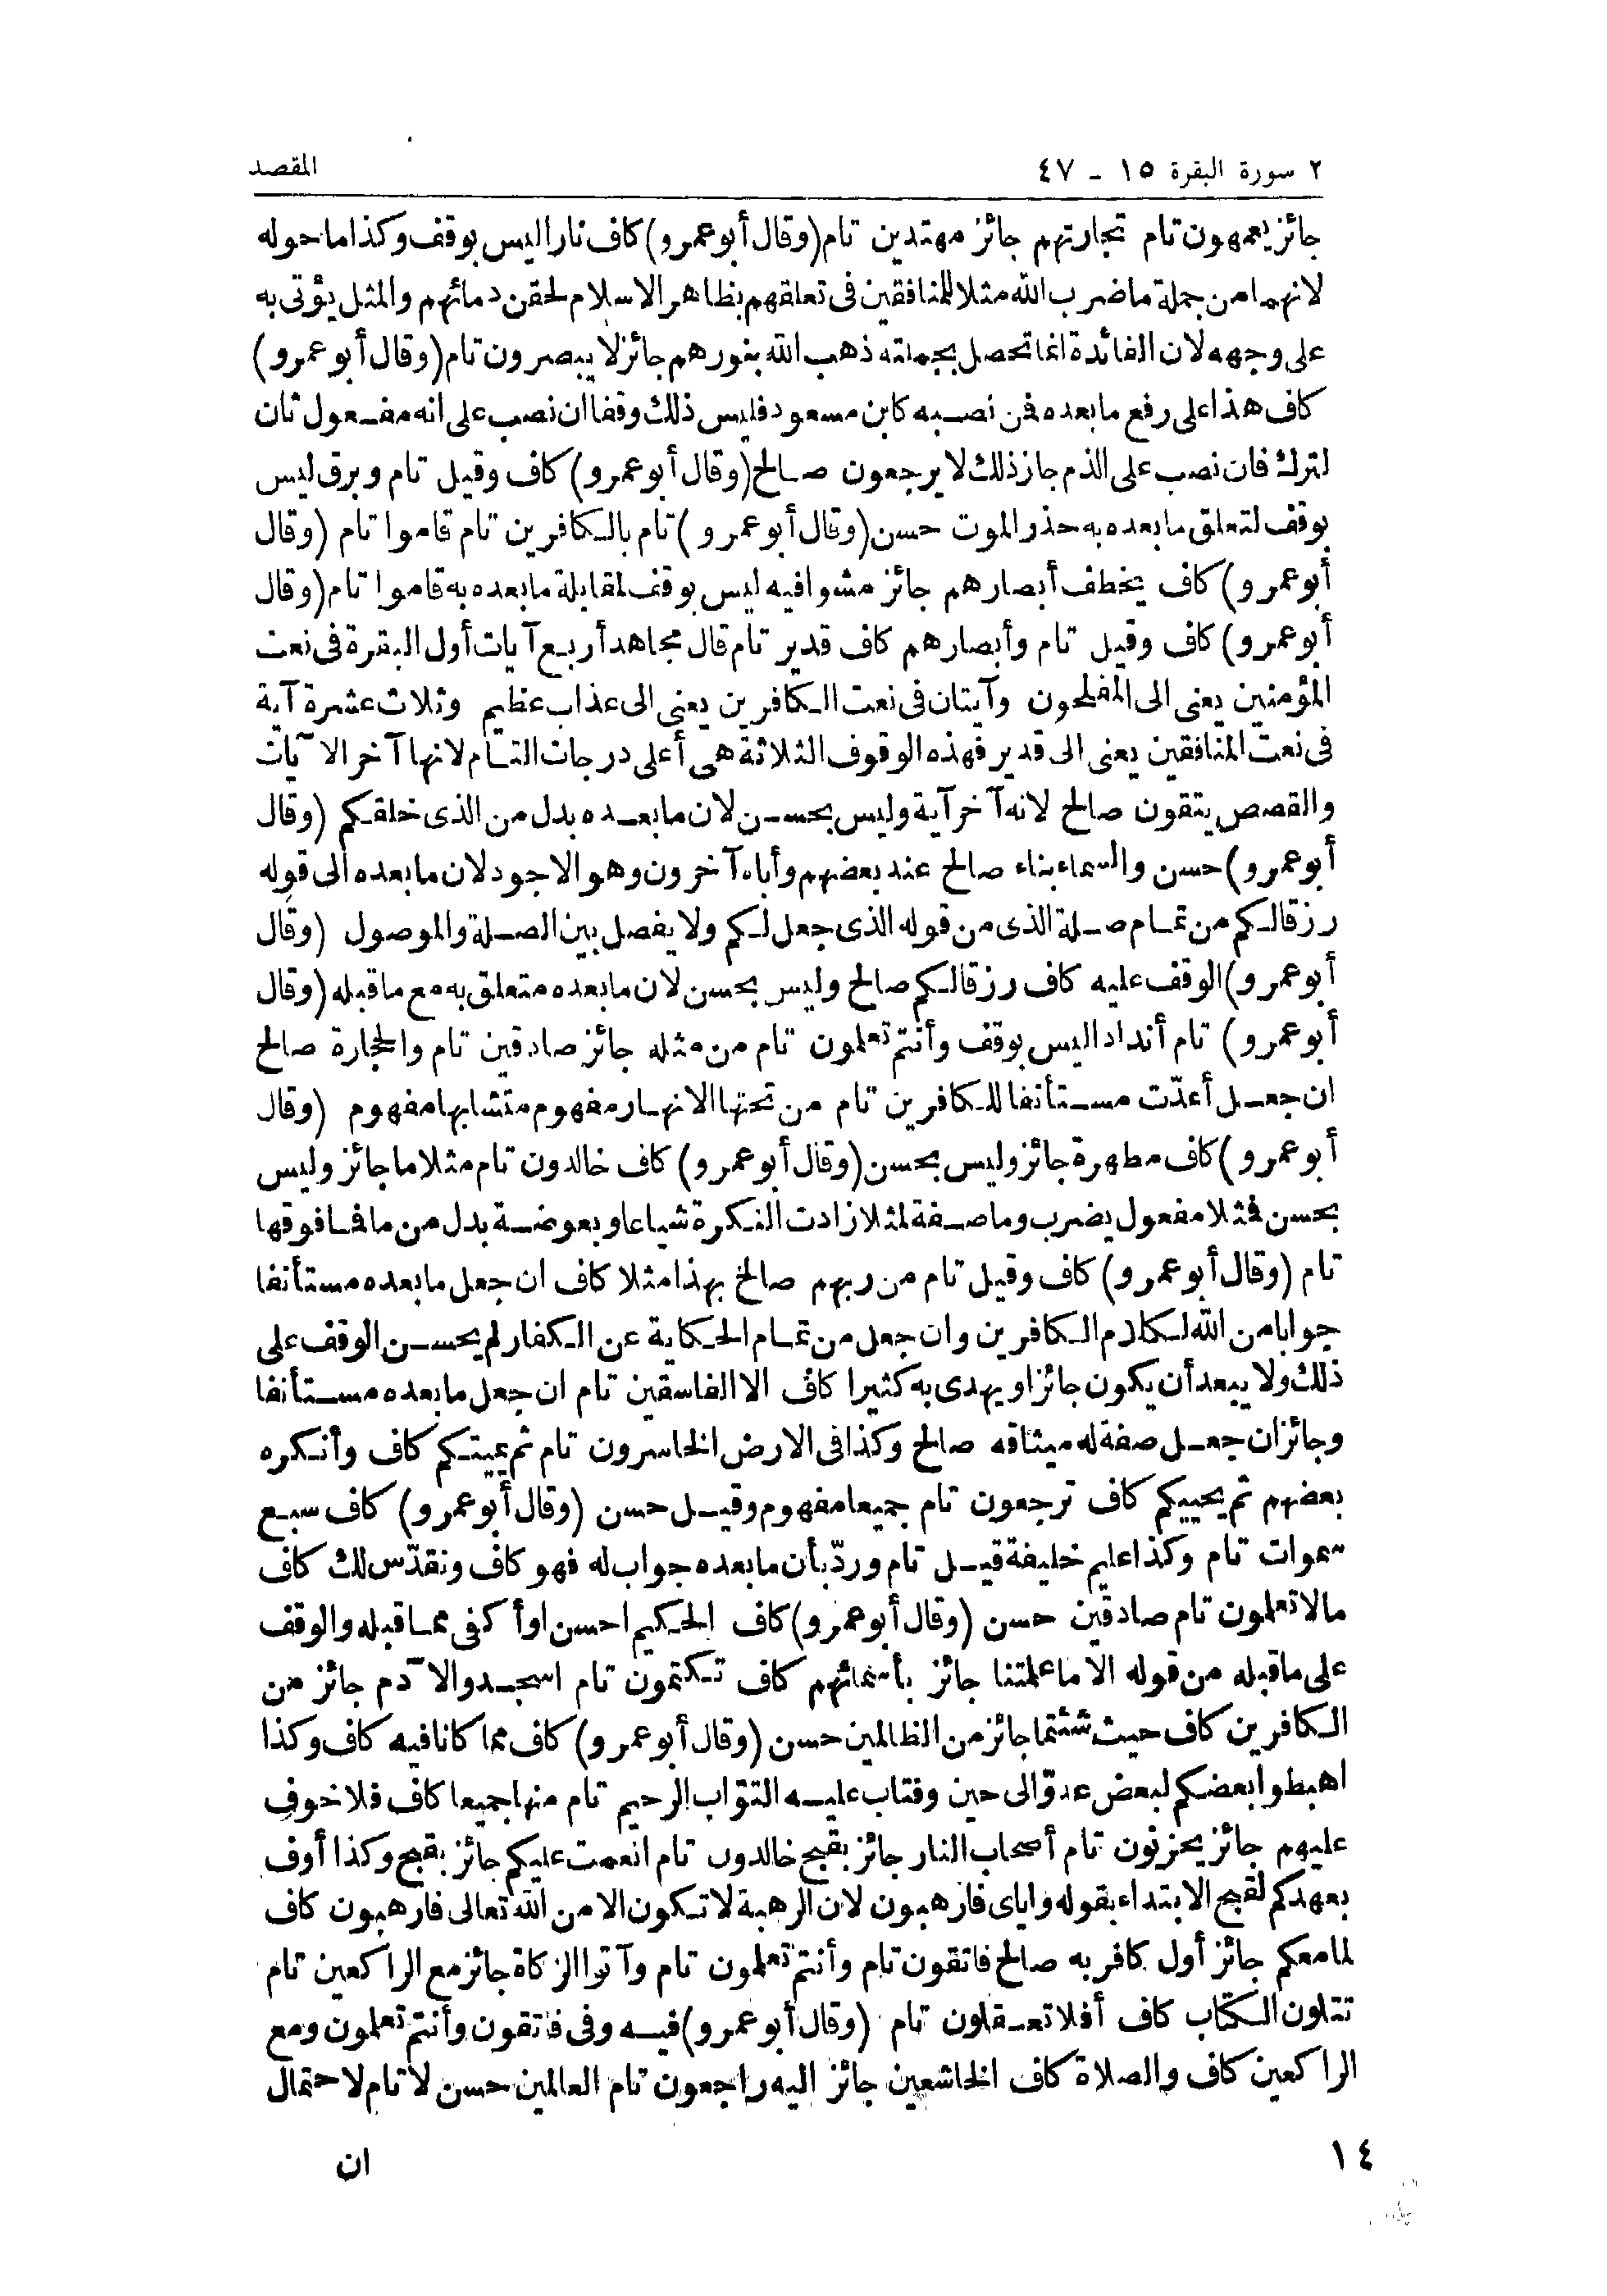 ٢ سورة البقرة ١٥ - ٤٧ المقصد
جائز يعمهون تام تجارتهم جائز مهتدين تام (وقال أبو عمرو) كاف نارا ليس بوقف وكذا ما حوله
لانهما من جملة ما ضرب الله مثلا للمنافقين فى تعلقهم بظاهر الاسلام لحقن دمائهم والمثل يؤتى به
على وجهه لان الفائدة انما تحصل بجملته ذهب الله بنورهم جائز لا يبصرون تام (وقال أبو عمرو)
كاف هذا على رفع ما بعده فمن نصبه كابن مسعود فليس ذلك وقفا ان نصب على انه مفعول ثان
لترك فان نصب على الذم جاز ذلك لا يرجعون صالح (وقال أبو عمرو) كاف وقيل تام وبرق ليس
بوقف لتعلق ما بعده به حذر الموت حسن (وقال أبو عمرو) تام بالكافرين تام قاموا تام (وقال
أبو عمرو) كاف يخطف أبصارهم جائز مشوا فيه ليس بوقف لمقابلة ما بعده به قاموا تام (وقال
أبو عمرو) كاف وقيل تام وأبصارهم كاف قدير تام قال مجاهد أربع آيات أول البقرة فى نعت
المؤمنين يعنى الى المفلحون وآيتان فى نعت الكافرين يعنى الى عذاب عظيم وثلاث عشرة آية
فى نعت المنافقين يعنى الى قدير فهذه الوقوف الثلاثة هى أعلى درجات التام لانها آخر الآيات
والقصص يتقون صالح لانه آخر آية وليس بحسن لان ما بعده بدل من الذى خلقكم (وقال
أبو عمرو) حسن والسماء بناء صالح عند بعضهم وأباه آخرون وهو الاجود لان ما بعده الى قوله
رزقا لكم من تمام صلة الذى من قوله الذى جعل لكم ولا يفصل بين الصلة والموصول (وقال
أبو عمرو) الوقف عليه كاف رزقا لكم صالح وليس بحسن لان ما بعده متعلق به مع ما قبله (وقال
أبو عمرو) تام أندادا ليس بوقف وأنتم تعلمون تام من مثله جائز صادقين تام والحجارة صالح
ان جعل أعدّت مستأنفا للكافرين تام من تحتها الانهار مفهوم متشابها مفهوم (وقال
أبو عمرو) كاف مطهرة جائز وليس بحسن (وقال أبو عمرو) كاف خالدون تام مثلا ما جائز وليس
بحسن فمثلا مفعول يضرب وما صفة لمثلا زادت النكرة شياعا وبعوضة بدل من ما فما فوقها
تام (وقال أبو عمرو) كاف وقيل تام من ربهم صالح بهذا مثلا كاف ان جعل ما بعده مستأنفا
جوابا من الله لكلام الكافرين وان جعل من تمام الحكاية عن الكفار لم يحسن الوقف على
ذلك ولا يبعد أن يكون جائزا ويهدى به كثيرا كاف الا الفاسقين تام ان جعل ما بعده مستأنفا
وجائز ان جعل صفة له ميثاقه صالح وكذا فى الارض الخاسرون تام ثم يميتكم كاف وأنكره
بعضهم ثم يحييكم كاف ترجعون تام جميعا مفهوم وقيل حسن (وقال أبو عمرو) كاف سبع
سموات تام وكذا عليم خليفة قيل تام وردّ بأن ما بعده جواب له فهو كاف ونقدّس لك كاف
مالا تعلمون تام صادقين حسن (وقال أبو عمرو) كاف الحكيم احسن او أكفى مما قبله والوقف
على ما قبله من قوله الا ما علمتنا جائز بأسمائهم كاف تكتمون تام اسجدوا لآدم جائز من
الكافرين كاف حيث شئتما جائز من الظالمين حسن (وقال أبو عمرو) كاف مما كانا فيه كاف وكذا
اهبطوا بعضكم لبعض عدوّ الى حين وفتاب عليه التوّاب الرحيم تام منها جميعا كاف فلا خوف
عليهم جائز يحزنون تام أصحاب النار جائز بقبح خالدون تام انعمت عليكم جائز بقبح وكذا أوف
بعهدكم لقبح الابتداء بقوله واياى فارهبون لان الرهبة لا تكون الا من الله تعالى فارهبون كاف
لما معكم جائز أول كافر به صالح فاتقون تام وأنتم تعلمون تام وآتوا الزكاة جائز مع الراكعين تام
تتلون الكتاب كاف أفلا تعقلون تام (وقال أبو عمرو) فيه وفى فاتقون وأنتم تعلمون ومع
الراكعين كاف والصلاة كاف الخاشعين جائز اليه راجعون تام العالمين حسن لا تام لاحتمال
١٤ ان